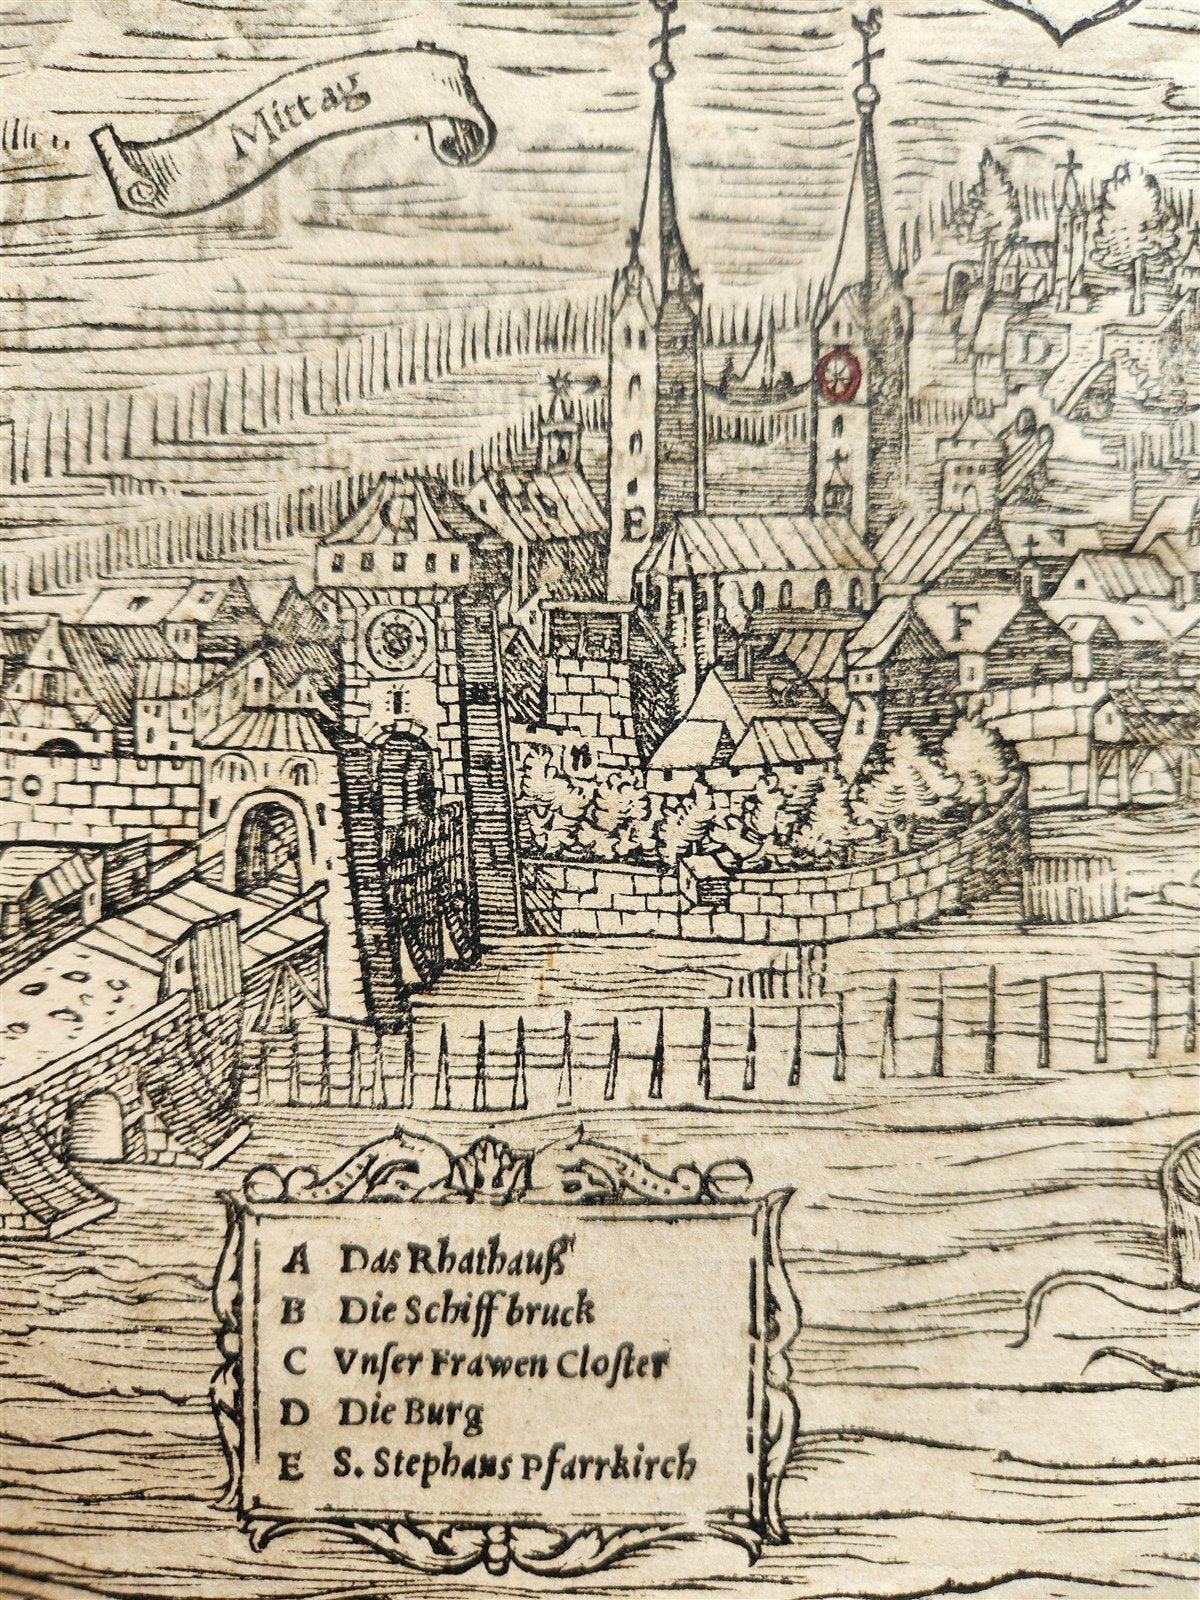 Mittag
D
G
E
F
A Das Rhathauß
B Die Schiff bruck
C Vnſer Frawen Cloſter
D Die Burg
E S. Stephans Pfarrkirch